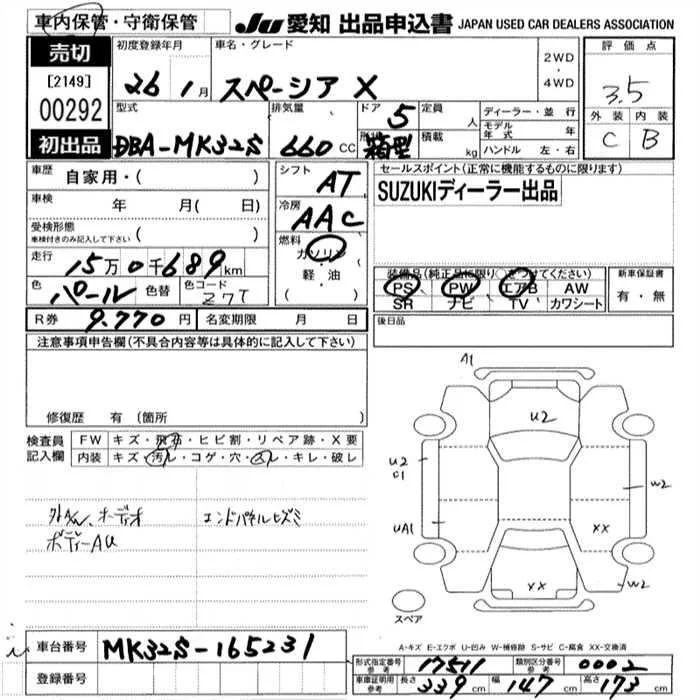 車内保管・守衛保管
JU 愛知 出品申込書 JAPAN USED CAR DEALERS ASSOCIATION
売切
[2149]
00292
初出品
初度登録年月
26 1月
車名・グレード
スペーシア X
2WD
・
4WD
評価点
3.5
外装 内装
C B
型式
DBA-MK32S
排気量
660 CC
ドア 5
形状 箱型
定員 人
積載 kg
ディーラー・並行
モデル年式 年
ハンドル 左・右
車歴
自家用・( )
車検 年 月( 日)
受検形態
車検付きのみ記入して下さい ( )
走行 15万0千689km
色 パール 色替 色コード Z7T
シフト AT
冷房 AAC
燃料 ガソリン
・
軽・油
( )
セールスポイント(正常に機能するものに限ります)
SUZUKIディーラー出品
装備品(純正品に限り)をつけてください
PS PW エアB AW
SR ナビ TV カワシート
新車保証書
有・無
R券 9.770円 名変期限 月 日
後日品
注意事項申告欄(不具合内容等は具体的に記入して下さい)
修復歴 有 (箇所 )
検査員記入欄
FW キズ・飛石・ヒビ割・リペア跡・X要
内装 キズ・汚レ・コゲ・穴・スレ・キレ・破レ
オーディオ
エンドパネルヒズミ
ボディーAU
A1
U2
U2
C1
W2
UA1
XX
XX
W2
スペア
A-キズ E-エクボ U-凹み W-補修跡 S-サビ C-腐食 XX-交換済
車台番号 MK32S-165231
登録番号
形式指定番号 参考 17511
類別区分番号 参考 0002
車庫証明用 参考 長さ 339cm 幅 147cm 高さ 173cm